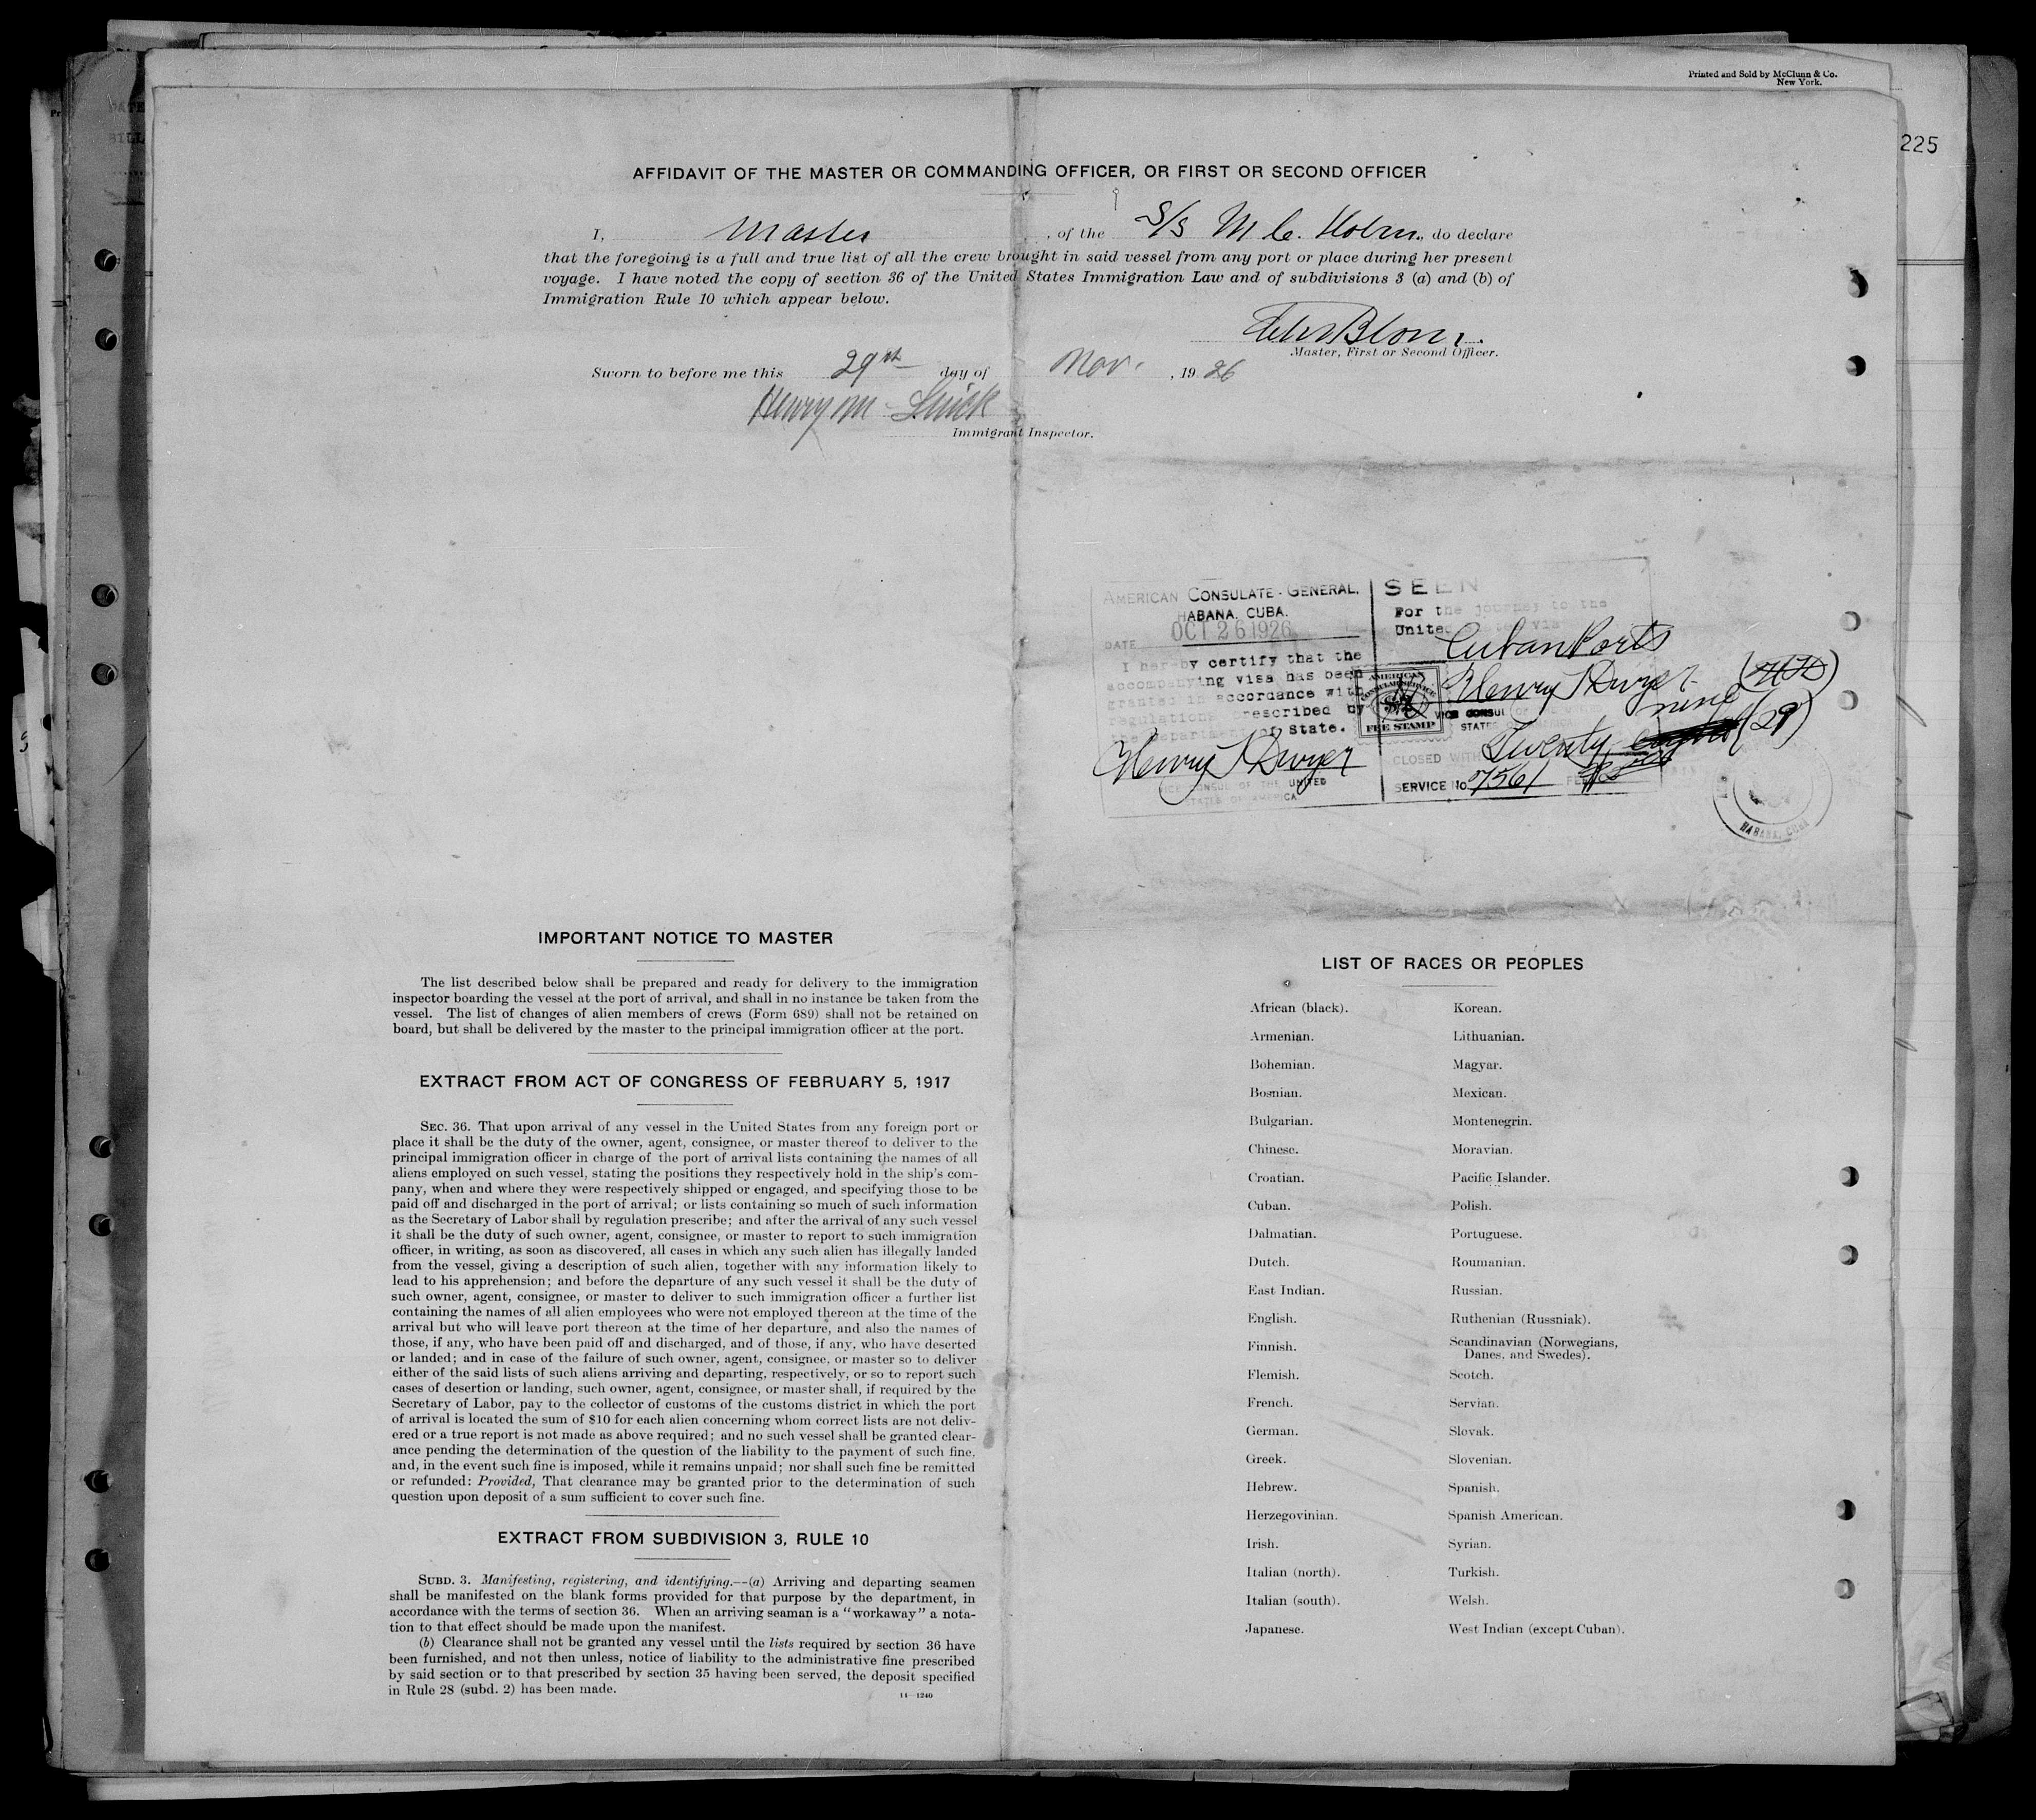 Printed and Sold by McClunn & Co.
New York.
225
AFFIDAVIT OF THE MASTER OR COMMANDING OFFICER, OR FIRST OR SECOND OFFICER
I, Master, of the S/S M. C. Holm., do declare
that the foregoing is a full and true list of all the crew brought in said vessel from any port or place during her present
voyage. I have noted the copy of section 36 of the United States Immigration Law and of subdivisions 3 (a) and (b) of
Immigration Rule 10 which appear below.
Master, First or Second Officer.
Sworn to before me this 29th day of Nov., 1926
Henry M
Immigrant Inspector.
AMERICAN CONSULATE-GENERAL,
HABANA, CUBA.
DATE OCT 26 1926
I hereby certify that the
accompanying visa has been
granted in accordance with
regulations prescribed by
the Department of State.
Henry T Dwyer
VICE CONSUL OF THE UNITED
STATES OF AMERICA
SEEN
For the journey to the
United via
Cuban Ports
Henry T Dwyer
AMERICAN
CONSULAR SERVICE
FEE STAMP
VICE CONSUL
nine
Twenty (29)
CLOSED WITH
SERVICE No 7561
HABANA, CUBA
IMPORTANT NOTICE TO MASTER
The list described below shall be prepared and ready for delivery to the immigration
inspector boarding the vessel at the port of arrival, and shall in no instance be taken from the
vessel. The list of changes of alien members of crews (Form 689) shall not be retained on
board, but shall be delivered by the master to the principal immigration officer at the port.
EXTRACT FROM ACT OF CONGRESS OF FEBRUARY 5, 1917
SEC. 36. That upon arrival of any vessel in the United States from any foreign port or
place it shall be the duty of the owner, agent, consignee, or master thereof to deliver to the
principal immigration officer in charge of the port of arrival lists containing the names of all
aliens employed on such vessel, stating the positions they respectively hold in the ship's com-
pany, when and where they were respectively shipped or engaged, and specifying those to be
paid off and discharged in the port of arrival; or lists containing so much of such information
as the Secretary of Labor shall by regulation prescribe; and after the arrival of any such vessel
it shall be the duty of such owner, agent, consignee, or master to report to such immigration
officer, in writing, as soon as discovered, all cases in which any such alien has illegally landed
from the vessel, giving a description of such alien, together with any information likely to
lead to his apprehension; and before the departure of any such vessel it shall be the duty of
such owner, agent, consignee, or master to deliver to such immigration officer a further list
containing the names of all alien employees who were not employed thereon at the time of the
arrival but who will leave port thereon at the time of her departure, and also the names of
those, if any, who have been paid off and discharged, and of those, if any, who have deserted
or landed; and in case of the failure of such owner, agent, consignee, or master so to deliver
either of the said lists of such aliens arriving and departing, respectively, or so to report such
cases of desertion or landing, such owner, agent, consignee, or master shall, if required by the
Secretary of Labor, pay to the collector of customs of the customs district in which the port
of arrival is located the sum of $10 for each alien concerning whom correct lists are not deliv-
ered or a true report is not made as above required; and no such vessel shall be granted clear-
ance pending the determination of the question of the liability to the payment of such fine,
and, in the event such fine is imposed, while it remains unpaid; nor shall such fine be remitted
or refunded: Provided, That clearance may be granted prior to the determination of such
question upon deposit of a sum sufficient to cover such fine.
EXTRACT FROM SUBDIVISION 3, RULE 10
SUBD. 3. Manifesting, registering, and identifying.--(a) Arriving and departing seamen
shall be manifested on the blank forms provided for that purpose by the department, in
accordance with the terms of section 36. When an arriving seaman is a "workaway" a nota-
tion to that effect should be made upon the manifest.
(b) Clearance shall not be granted any vessel until the lists required by section 36 have
been furnished, and not then unless, notice of liability to the administrative fine prescribed
by said section or to that prescribed by section 35 having been served, the deposit specified
in Rule 28 (subd. 2) has been made.
14—1240
LIST OF RACES OR PEOPLES
African (black).
Armenian.
Bohemian.
Bosnian.
Bulgarian.
Chinese.
Croatian.
Cuban.
Dalmatian.
Dutch.
East Indian.
English.
Finnish.
Flemish.
French.
German.
Greek.
Hebrew.
Herzegovinian.
Irish.
Italian (north).
Italian (south).
Japanese.
Korean.
Lithuanian.
Magyar.
Mexican.
Montenegrin.
Moravian.
Pacific Islander.
Polish.
Portuguese.
Roumanian.
Russian.
Ruthenian (Russniak).
Scandinavian (Norwegians,
Danes, and Swedes).
Scotch.
Servian.
Slovak.
Slovenian.
Spanish.
Spanish American.
Syrian.
Turkish.
Welsh.
West Indian (except Cuban).